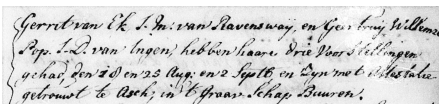 Gerrit van Ek J. M: van Ravensway, en Geertruy Willemze
Pop. J. D. van Ingen, hebben haare drie Voorstellingen
gehad, den 18 en 25 Aug: en 2 Septb, en Zyn met Attestatie
getrouwt te Asch, in 't Graav Schap Buuren.